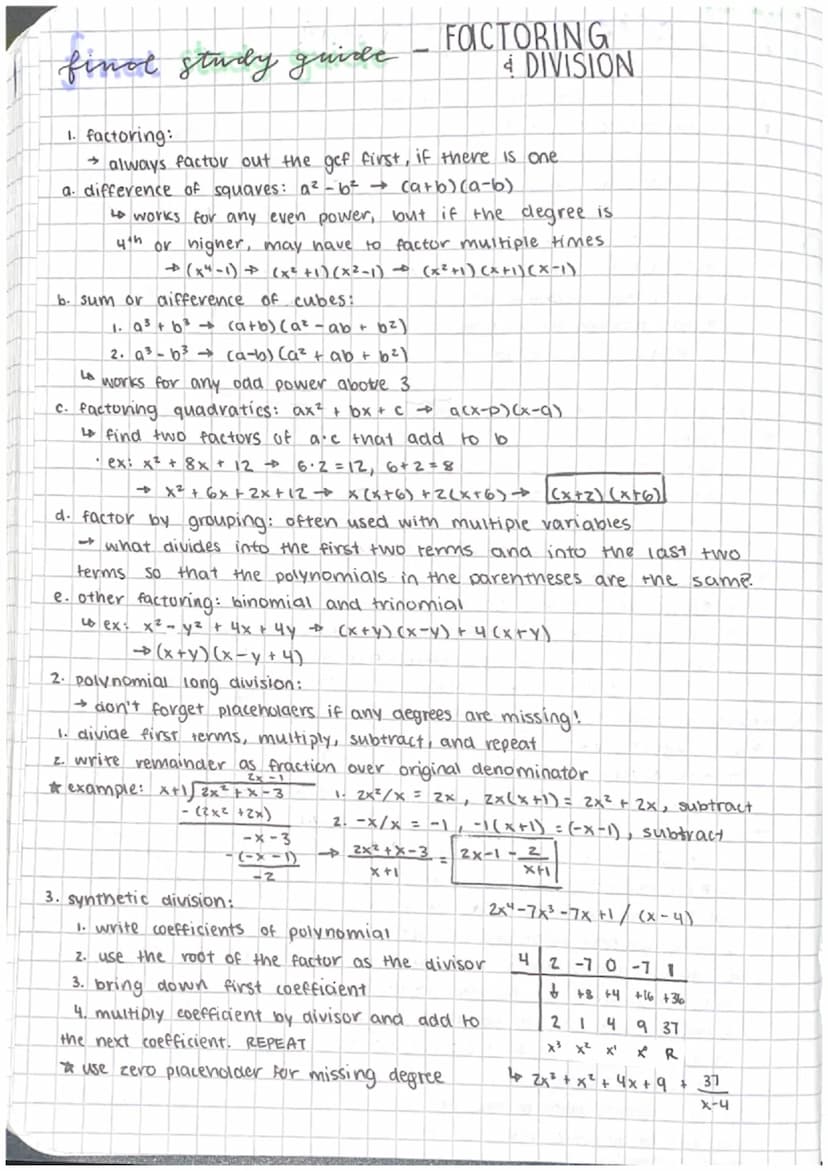 final study guide - FACTORING
& DIVISION
1. factoring:
→ always factor out the gcf first, if there is one
a. difference of squares: a² - b² → (a+b)(a-b)
↳ works for any even power, but if the degree is
4th or higher, may have to factor multiple times
→ (x⁴-1) → (x²+1)(x²-1) → (x²+1)(x+1)(x-1)
b. sum or difference of cubes:
1. a³ + b³ → (a+b)(a² - ab + b²)
2. a³ - b³ → (a-b)(a² + ab + b²)
↳ works for any odd power above 3
c. factoring quadratics: ax² + bx + c → a(x-p)(x-q)
↳ find two factors of a·c that add to b
· ex: x² + 8x + 12 → 6·2 = 12, 6+2 = 8
→ x² + 6x + 2x + 12 → x(x+6) + 2(x+6) → (x+2)(x+6)
d. factor by grouping: often used with multiple variables
→ what divides into the first two terms and into the last two
terms so that the polynomials in the parentheses are the same?
e. other factoring: binomial and trinomial
↳ ex: x² - y² + 4x + 4y → (x+y)(x-y) + 4(x+y)
→ (x+y)(x-y+4)
2. polynomial long division:
→ don't forget placeholders if any degrees are missing!
1. divide first terms, multiply, subtract, and repeat
2. write remainder as fraction over original denominator
2x -1
* example: x+1 √2x² + x - 3 1. 2x²/x = 2x, 2x(x+1) = 2x² + 2x, subtract
- (2x² + 2x) 2. -x/x = -1, -1(x+1) = (-x-1), subtract
-x - 3
- (-x - 1) → 2x²+x-3 / x+1 = 2x-1 - 2 / x+1
-2
3. synthetic division: 2x⁴-7x³-7x+1 / (x-4)
1. write coefficients of polynomial
2. use the root of the factor as the divisor 4 | 2 -7 0 -7 1
3. bring down first coefficient ↓ +8 +4 +16 +36
4. multiply coefficient by divisor and add to 2 1 4 9 37
the next coefficient. REPEAT x³ x² x¹ x⁰ R
* use zero placeholder for missing degree ↳ 2x³ + x² + 4x + 9 + 37 / x-4